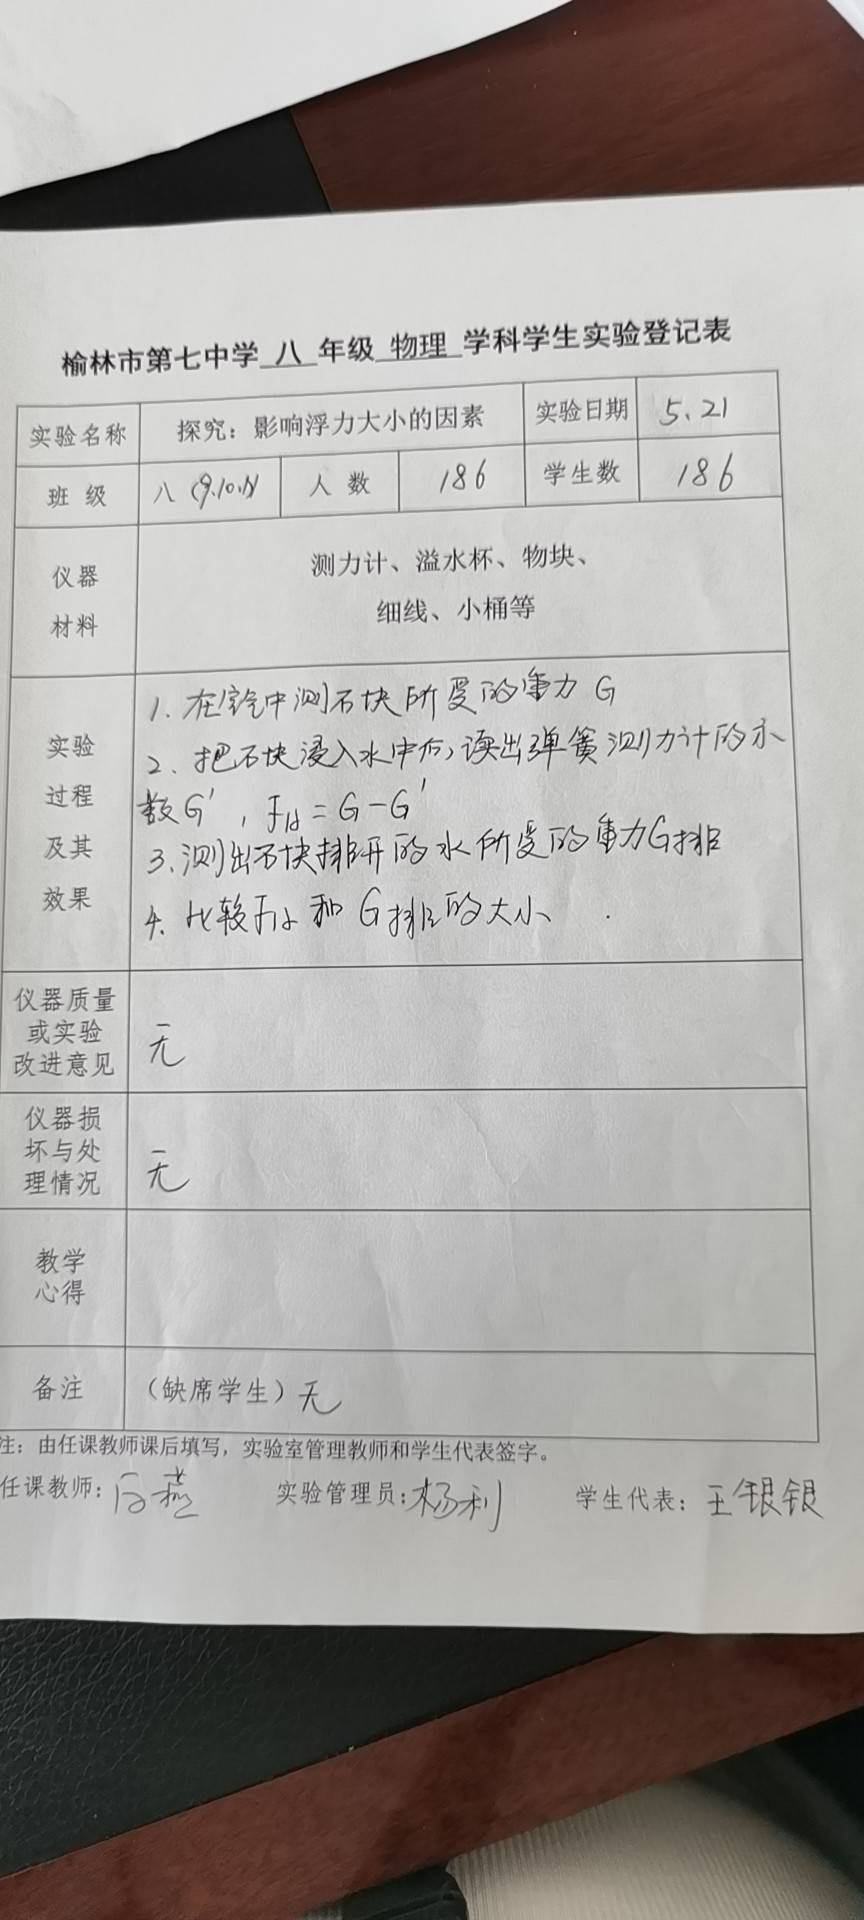 榆林市第七中学 八 年级 物理 学科学生实验登记表
实验名称 探究：影响浮力大小的因素 实验日期 5.21
班 级 八（9.10.11） 人 数 186 学生数 186
仪器
材料
测力计、溢水杯、物块、
细线、小桶等
实验
过程
及其
效果
1. 在空气中测石块所受的重力 G
2. 把石块浸入水中后，读出弹簧测力计的示
数G'，F浮=G-G'
3. 测出石块排开的水所受的重力G排
4. 比较F浮和G排的大小
仪器质量
或实验
改进意见
无
仪器损
坏与处
理情况
无
教学
心得
备注 （缺席学生）无
注：由任课教师课后填写，实验室管理教师和学生代表签字。
任课教师： 实验管理员：杨利 学生代表：王银银